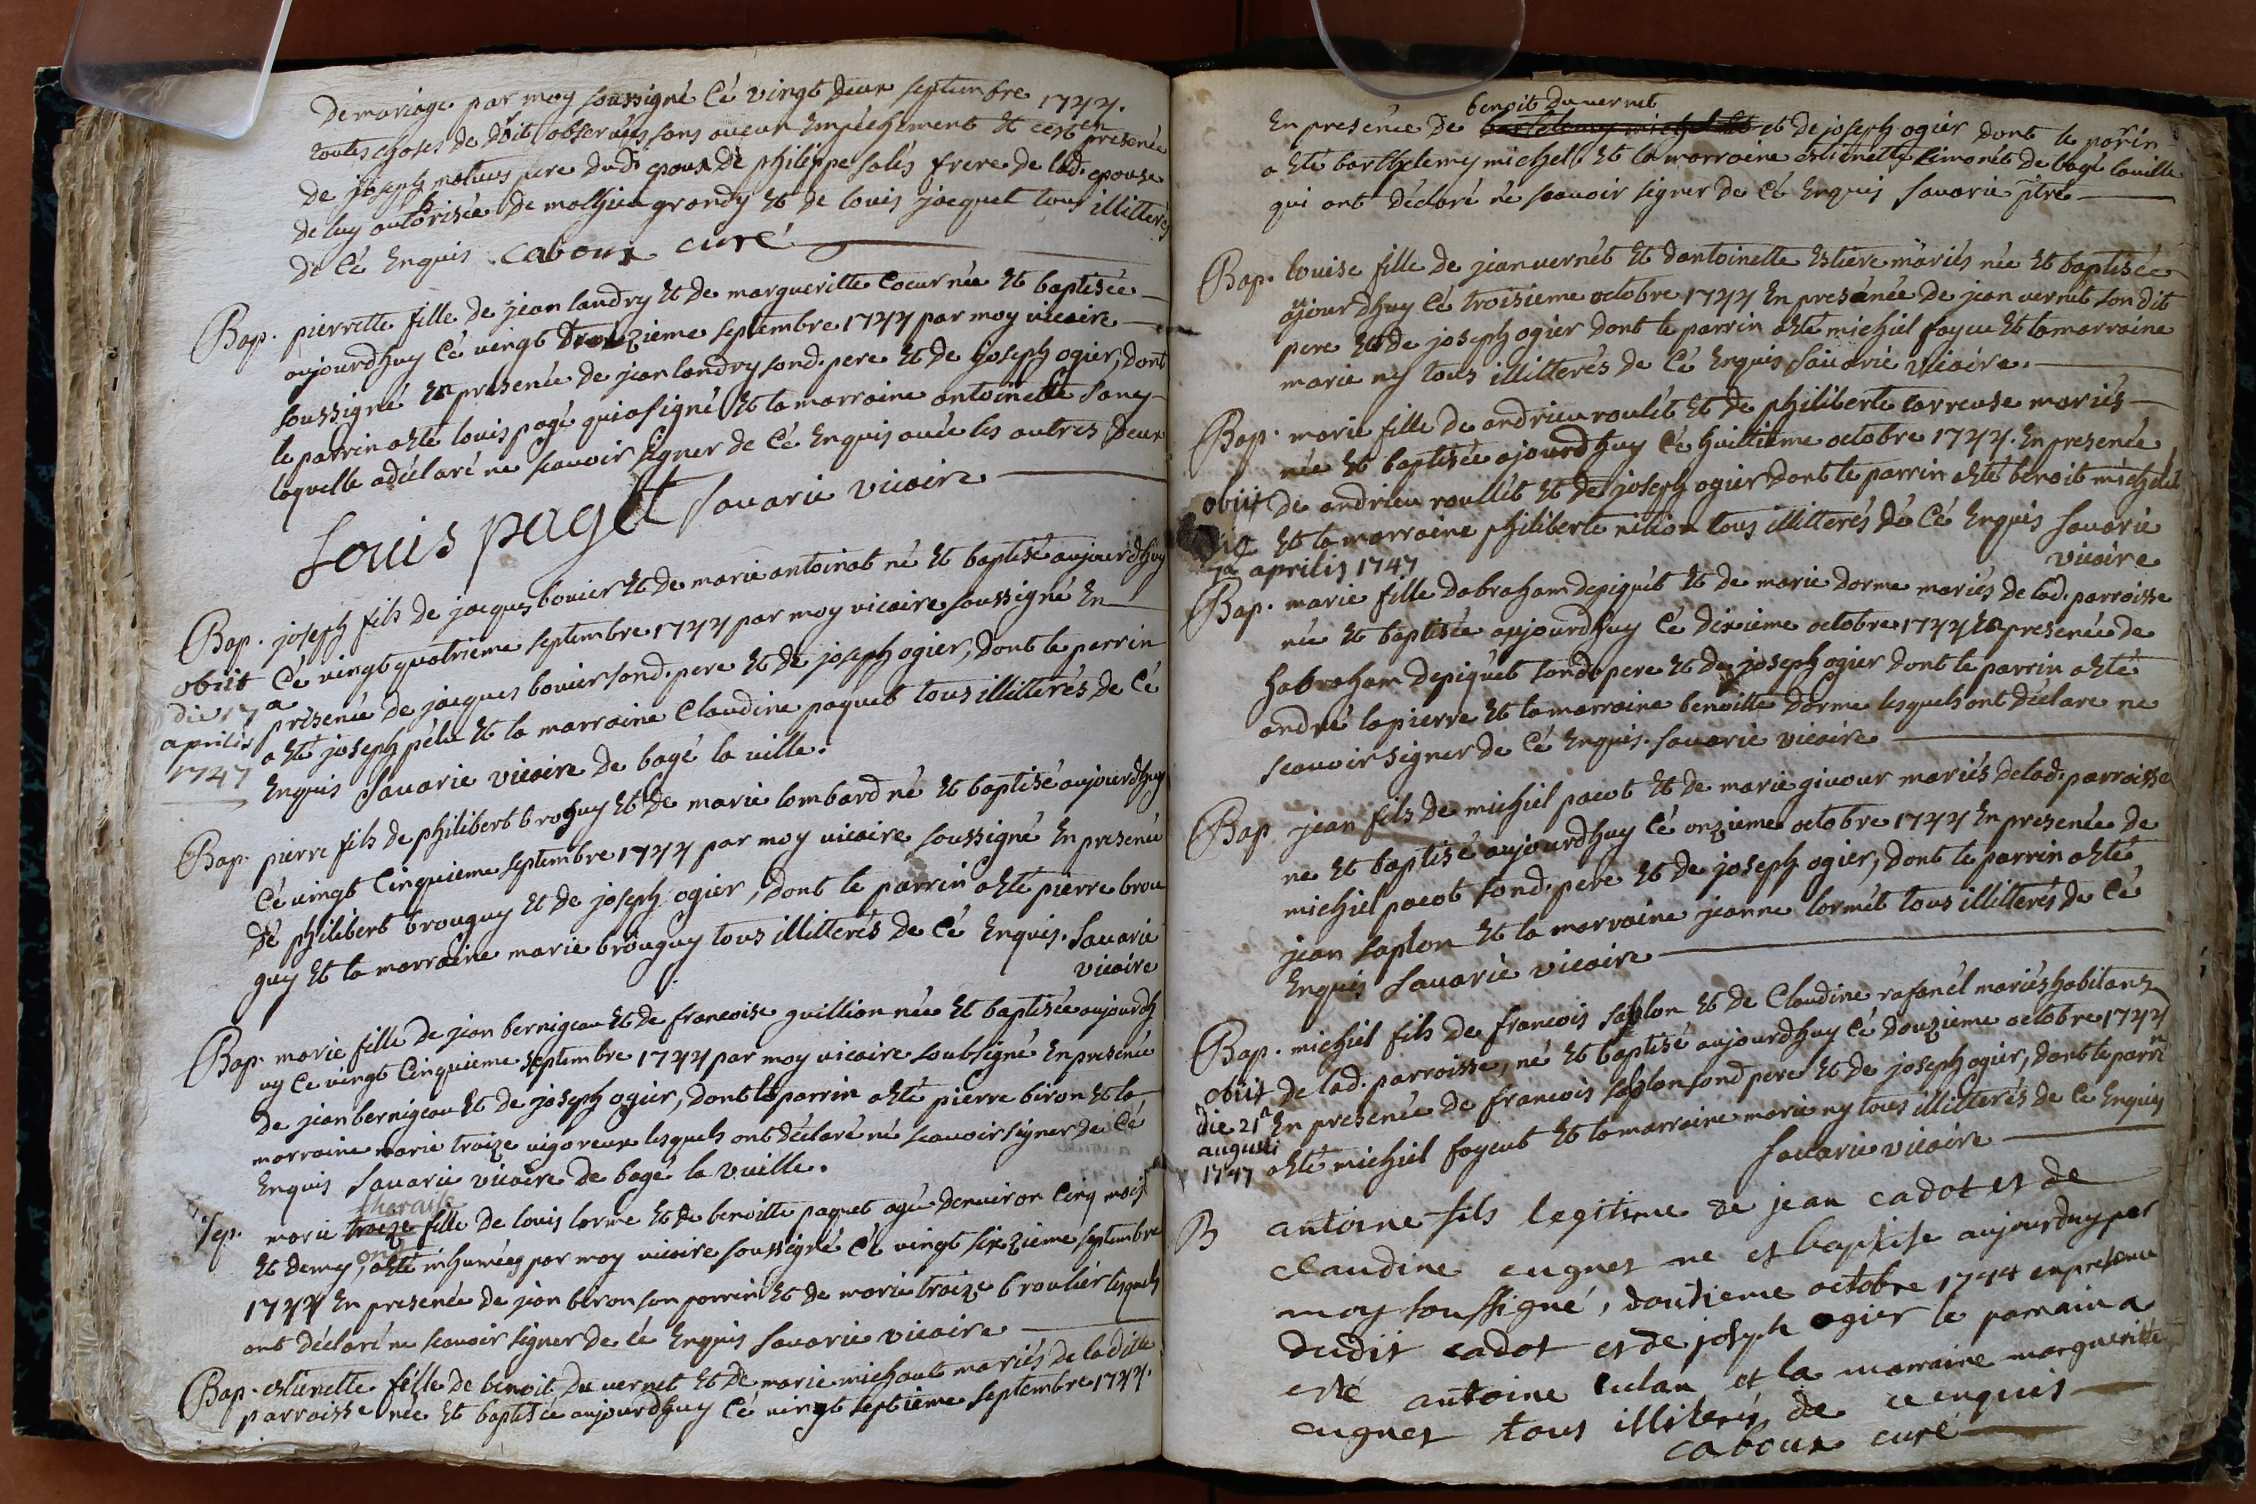 De mariage par moy soussigné Cé vingt deux septembre 1744.
toutes choses de droit observées sans aucun Empéchement Et cest en presence
de joseph mathieus pere dud. epoux De philippe salés frere de lad. epouse
de luy authorisée De mathieu grandy Et de louis jacquet tous illitterés
de Cé Enquis. caboux curé
Bap. pierrette fille de jean landry Et de margueritte Coeur née Et baptisée
aujourdhuy Cé vingt troizieme septembre 1744 par moy vicaire
soussigné En presence de jean landry sond. pere Et de joseph ogier, dont
le parrin a Eté louis pagé qui a signé Et la marraine antoinette sany
laquelle a déclaré ne scavoir signer de Cé Enquis avéc les autres Deux
Louis paget savarie vicaire
Bap. joseph fils de jacques bouier Et de marie antoinat né Et baptisé aujourdhuy
obiit Cé vingt quatrieme septembre 1744 par moy vicaire soussigné En
die 17a présence de jacques bouier sond. pere Et de joseph ogier, dont le parrin
aprilis a Eté joseph pélu Et la marraine Claudine paquet tous illitterés, de Cé
1747 Enquis Savarie vicaire de bagé la ville.
Bap. pierre fils de philibert broguy Et de marie lombard né Et baptisé aujourdhuy
Cé vingt Cinquieme septembre 1744 par moy vicaire soussigné En presence
dé philibert brouguy Et de joseph ogier, dont le parrin a Eté pierre brou
guy Et la marraine marie brouguy tous illitterés de Cé Enquis. Savarie
vicaire
Bap. marie fille de jean bernigeau Et de francoise guillion née Et baptisée aujourdh
uy Ce vingt Cinquieme septembre 1744 par moy vicaire soubsigné En presence
de jean bernigeau Et de joseph ogier, dont le parrin a Eté pierre biron Et la
marraine marie traize vigoreux lesquels ont déclaré né scavoir signer de Cé
Enquis Savarie vicaire de bagé la ville.
Sep. marie traize fille de louis lorme Et de benoitte paquet agé denviron Cinq mois
Et demy, a Eté inhumée par moy vicaire soussigné Cé vingt sixzieme septembre
1744 En presence de jean biron son parrin Et de marie traize broulier lesquels
ont déclaré ne scavoir signer de Cé Enquis Savarie vicaire
Bap. estienette fille de benoit du vernet Et de marie michaut mariés de la ditte
parroisse née Et baptisée aujourdhuy Cé vingt septieme septembre 1744.
benoit duvernet
En presénce de barthelemy michelet et de joseph ogier dont le parrin
a Eté barthelemy michelet Et la marraine estienette Limonét de bagé laville
qui ont déclaré né scavoir signer de Cé Enquis Savarie ptre
Bap. louise fille de jean vernét Et dantoinette Estiere mariés née Et baptisée
ajourdhuy Cé troisieme octobre 1744 En presénce de jean vernet son dit
pere Et de joseph ogier dont le parrin a Eté michiel fayeu Et la marraine
marie ny tous illitterés de Cé Enquis Savarie vicaire.
Bap. marie fille de andrieu roulét Et de philiberte carreuse mariés
née Et baptisée ajourdhuy Cé huittieme octobre 1744. En presence
obiit de andrieu roullét Et de joseph ogier dont le parrin a Eté benoit michelet
Et la marraine philiberte nition tous illitterés de Cé Enquis Savarie
7a aprilis 1747 vicaire
Bap. marie fille dabraham depiquét Et de marie dorme mariés de lad. parroisse
née Et baptisée aujourdhuy Cé dixieme octobre 1744 En presence de
habraham depiquét sond. pere Et de joseph ogier dont le parrin a Eté
andré lapierre Et la marraine benoitte dorme lesquels ont déclare ne
scavoir signer de Cé Enquis. Savarie vicaire
Bap jean fils de michiel pacot Et de marie givour mariés de lad. parroisse
ne Et baptisé aujourdhuy Cé onzieme octobre 1744 En presence de
michiel pacot sond. pere Et de joseph ogier, dont le parrin a Eté
jean saplon Et la marraine jeanne lormét tous illitterés de Cé
Enquis Savarie vicaire
Bap. michiel fils de francois saplon Et de Claudine rafanél mariés habitans
obiit de lad. parroisse, né Et baptisé aujourdhuy Cé douzieme octobre 1744
die 21a En presence de francois saplon sond pere Et de joseph ogier, dont le parrin
augusti
1747 a Eté michiel fayeut Et la marraine marie ny tous illitterés de Ce Enquis
Savarie vicaire
B antoine fils legitime de jean cadot et de
claudine cugnet ne et baptise aujourduy par
moy soussigné, douzieme octobre 1744 en presence
dudit cadot et de joseph ogier le parrain a
esté antoine culan et la marraine margueritte
cugnet tous illiterés de ce enquis
caboux curé